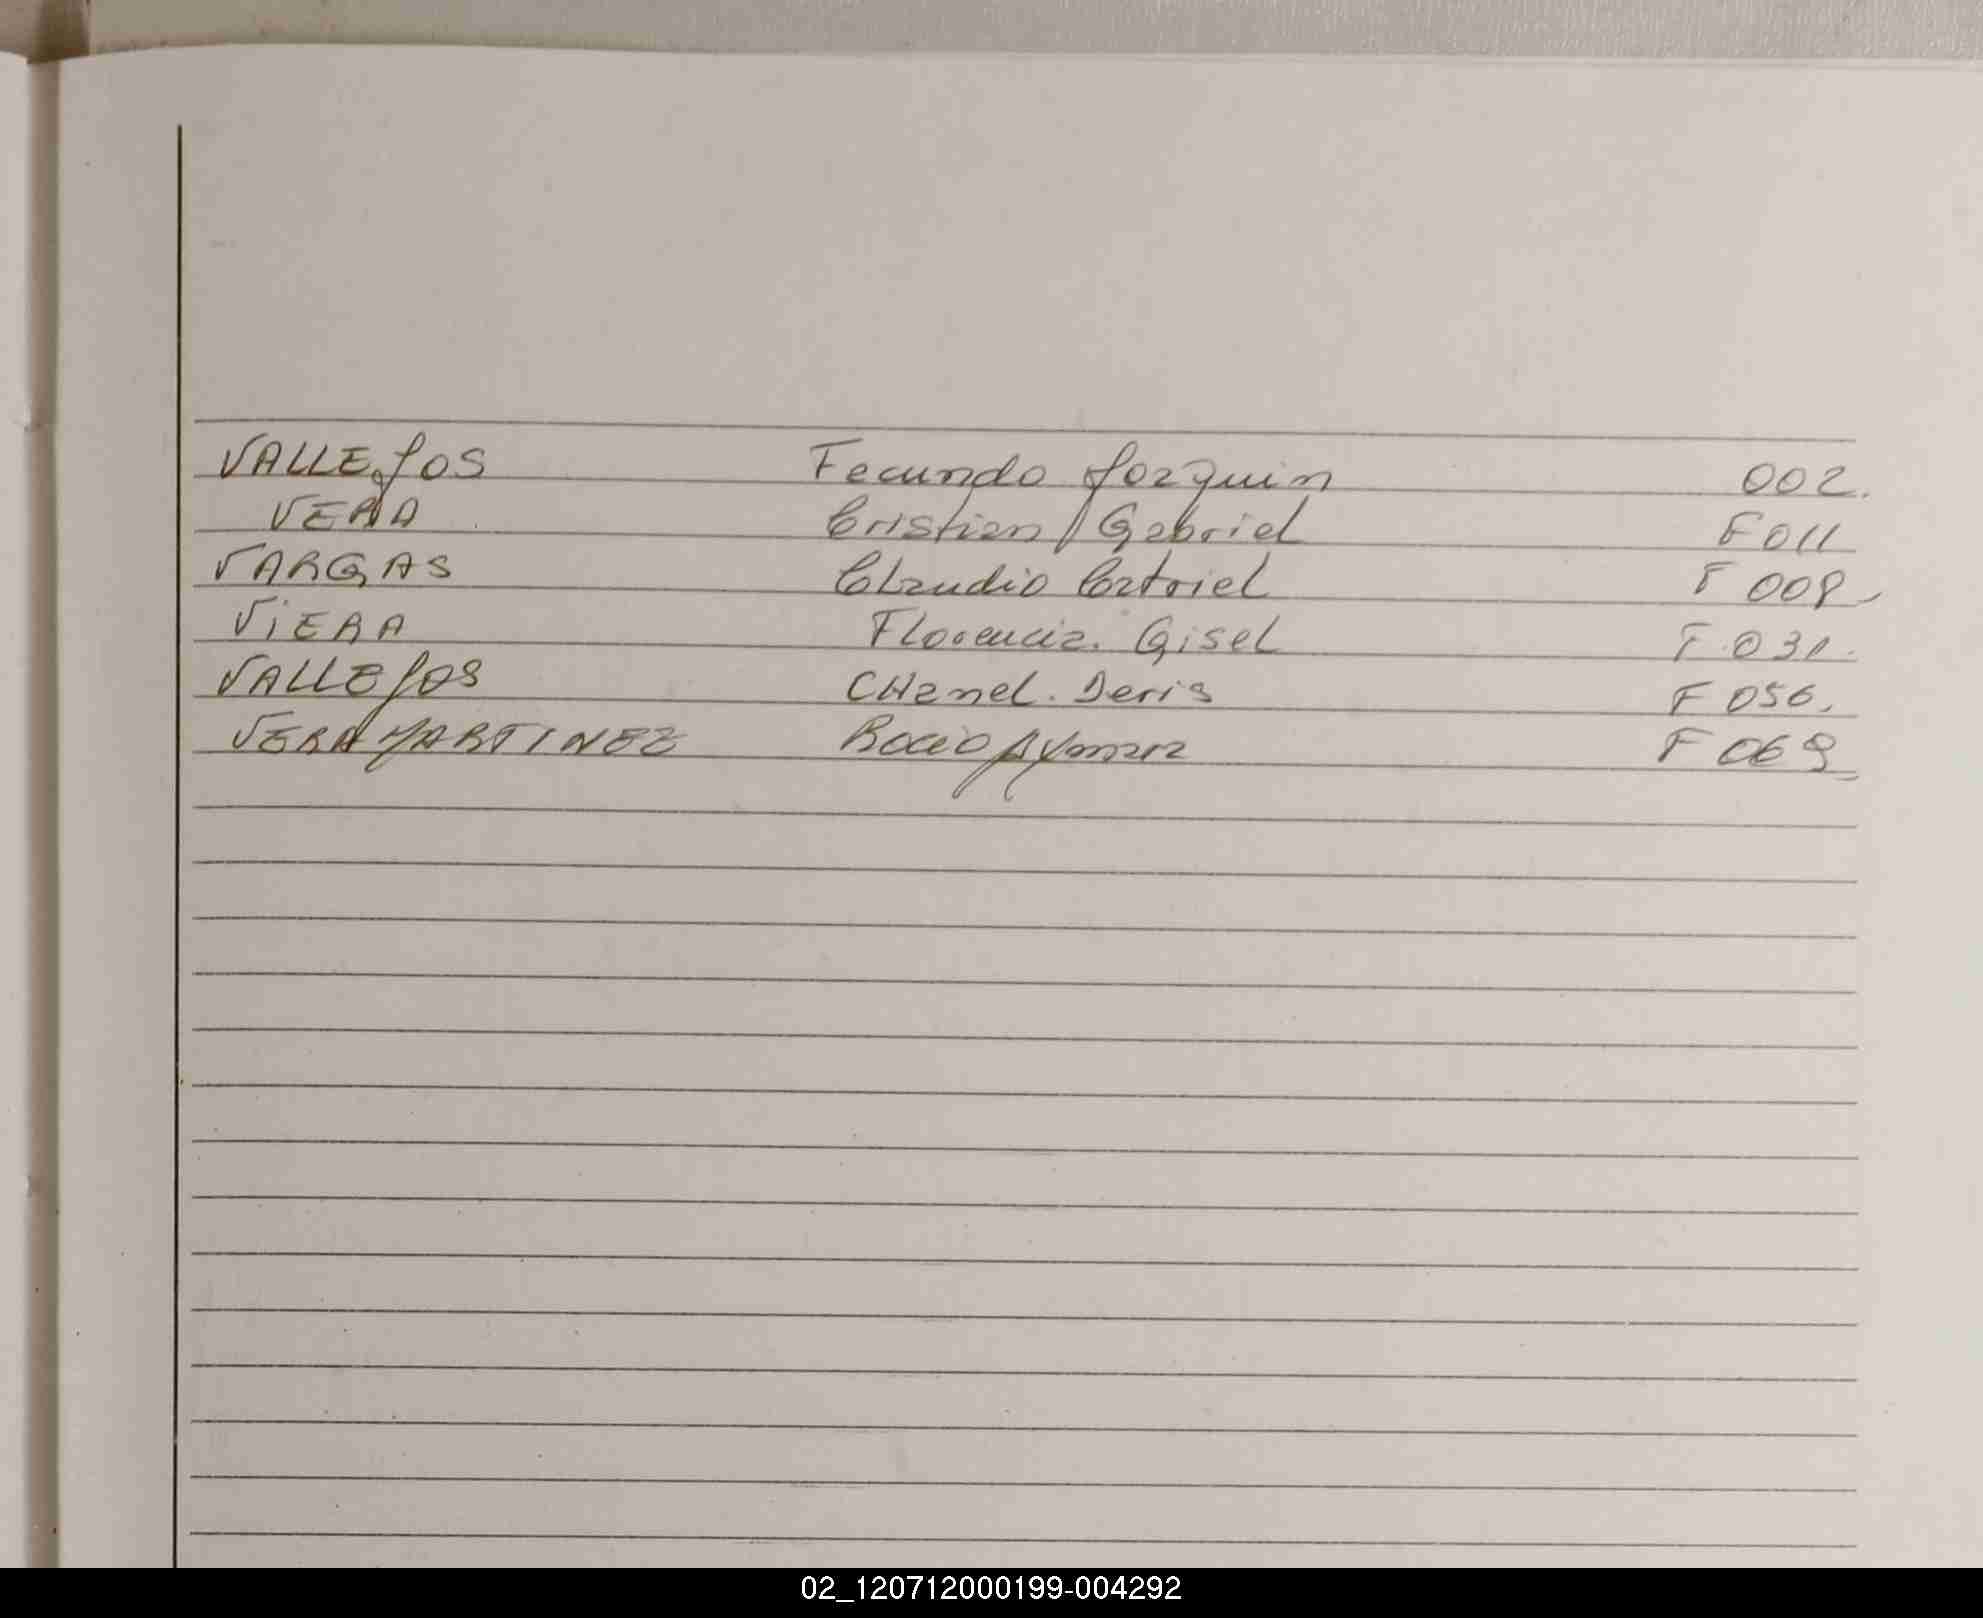 VALLEJOS Facundo Joaquin 002.
VERA Cristian Gabriel F 011
VARGAS Claudio Catriel F 008
ViERA Florencia. Gisel F 031.
VALLEJOS CHanel. Denis F 056.
VERA MARTINEZ Rocio Aymara F 069
02_120712000199-004292